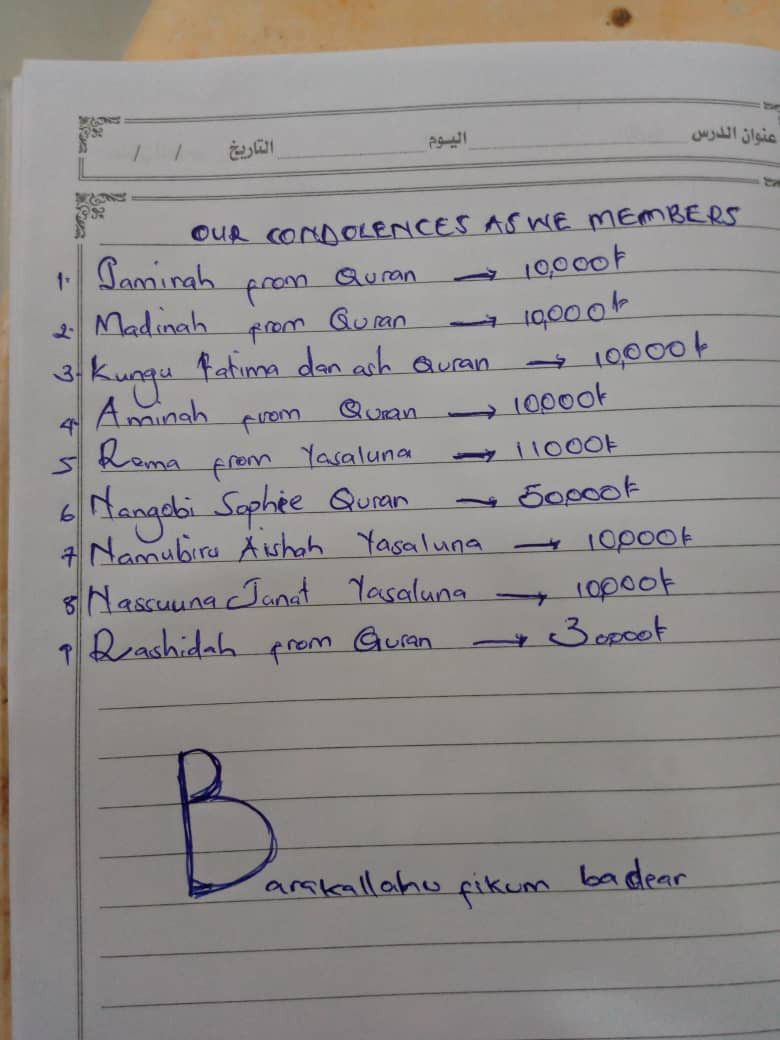 عنوان الدرس اليوم التاريخ / /
OUR CONDOLENCES AS WE MEMBERS
1. Jamirah from Quran → 10,000/=
2. Madinah from Quran → 10,000/=
3. Kungu Fatima dan ash Quran → 10,000/=
4. Aminah from Quran → 10000/=
5 Rema from Yasaluna → 11000/=
6 Nangobi Sophie Quran → 50,000/=
7 Namubiru Aishah Yasaluna → 10,000/=
8 Nassuuna Janat Yasaluna → 10,000/=
9 Rashidah from Quran → 30,000/=
Barakallahu fikum badear